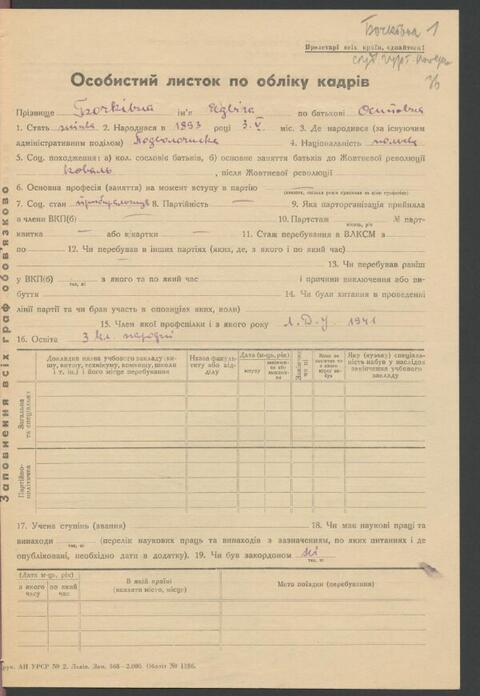 Бочківна 1
Пролетарі всіх країн, єднайтеся!
Особистий листок по обліку кадрів
Прізвище Бочківна ім'я Ядвіга по батькові Осиповна
1. Стать жінка 2. Народився в 1893 році 3.V міс. 3. Де народився (за існуючим
адміністративним поділом) Подволочиська 4. Національність полька
5. Соц. походження: а) кол. сословіє батьків, б) основне заняття батьків до Жовтневої революції
коваль , після Жовтневої революції
6. Основна професія (заняття) на момент вступу в партію
7. Соц. стан прибиральниця 8. Партійність — 9. Яка парторганізація прийняла
в члени ВКП(б) — 10. Партстаж № парт-
квитка — або к/картки — 11. Стаж перебування в ВЛКСМ з
по 12. Чи перебував в інших партіях (яких, де, з якого і по який час)
13. Чи перебував раніш
у ВКП(б) так, ні з якого та по який час і причини виключення або ви-
буття 14. Чи були хитання в проведенні
лінії партії та чи брав участь в опозиціях яких, коли)
15. Член якої профспілки і з якого року 1941
16. Освіта 3 кл. народні
Заповнення всіх граф обов'язково
Докладна назва учбового закладу (ви-
шу, втузу, технікуму, комвишу, школи
і т. ін.) і його місце перебування
Назва факуль-
тету або від-
ділу
Дата (м-ць, рік)
вступу
Закінчив
чи ні
Яку (вузьку) спеціаль-
ність набув в наслідок
закінчення учбового
закладу
Загальна
та спеціальна
Партійно-
політична
17. Учена ступінь (звання) 18. Чи має наукові праці та
винаходи так, ні (перелік наукових праць та винаходів з зазначенням, по яких питаннях і де
опубліковані, необхідно дати в додатку). 19. Чи був закордоном ні
так, ні
(Дата м-ць, рік)
з якого часу
по який час
В якій країні
(вказати місто, місце)
Мета поїздки (перебування)
рук. АН УРСР № 2. Львів. Зам. 568—2.000. Обліт № 1186.